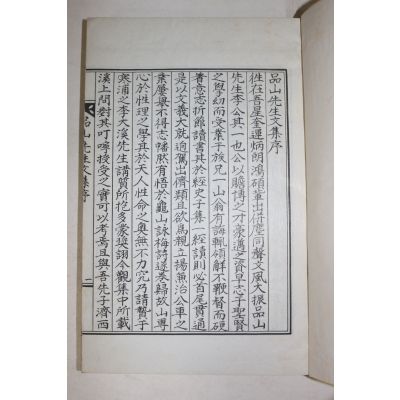 品山先生文集序
徃在吾星奎運炳朗鴻碩輩出倂塵同聲文風大振品山
先生李公其一也公以贍博之才豪邁之資早志于聖賢
之學幼而受業于族兄一山翁有誨輒領解不鞭督而硬
着意志折節讀書其於經史子集一經讀則必首尾貫通
是以文義大就逈駕出儕類且欲爲親立揚兼治公車之
業屢擧不得志幡然有悟於龜山詠梅詩遂卷歸故山專
心於性理之學其於天人性命之奧無不力究乃請贄于
寒浦之李大溪先生講質所抱多蒙奬詡今觀集中所載
溪上問對其叮嚀授受之實可以考焉且與吾先子濟西
品山先生文集序
二